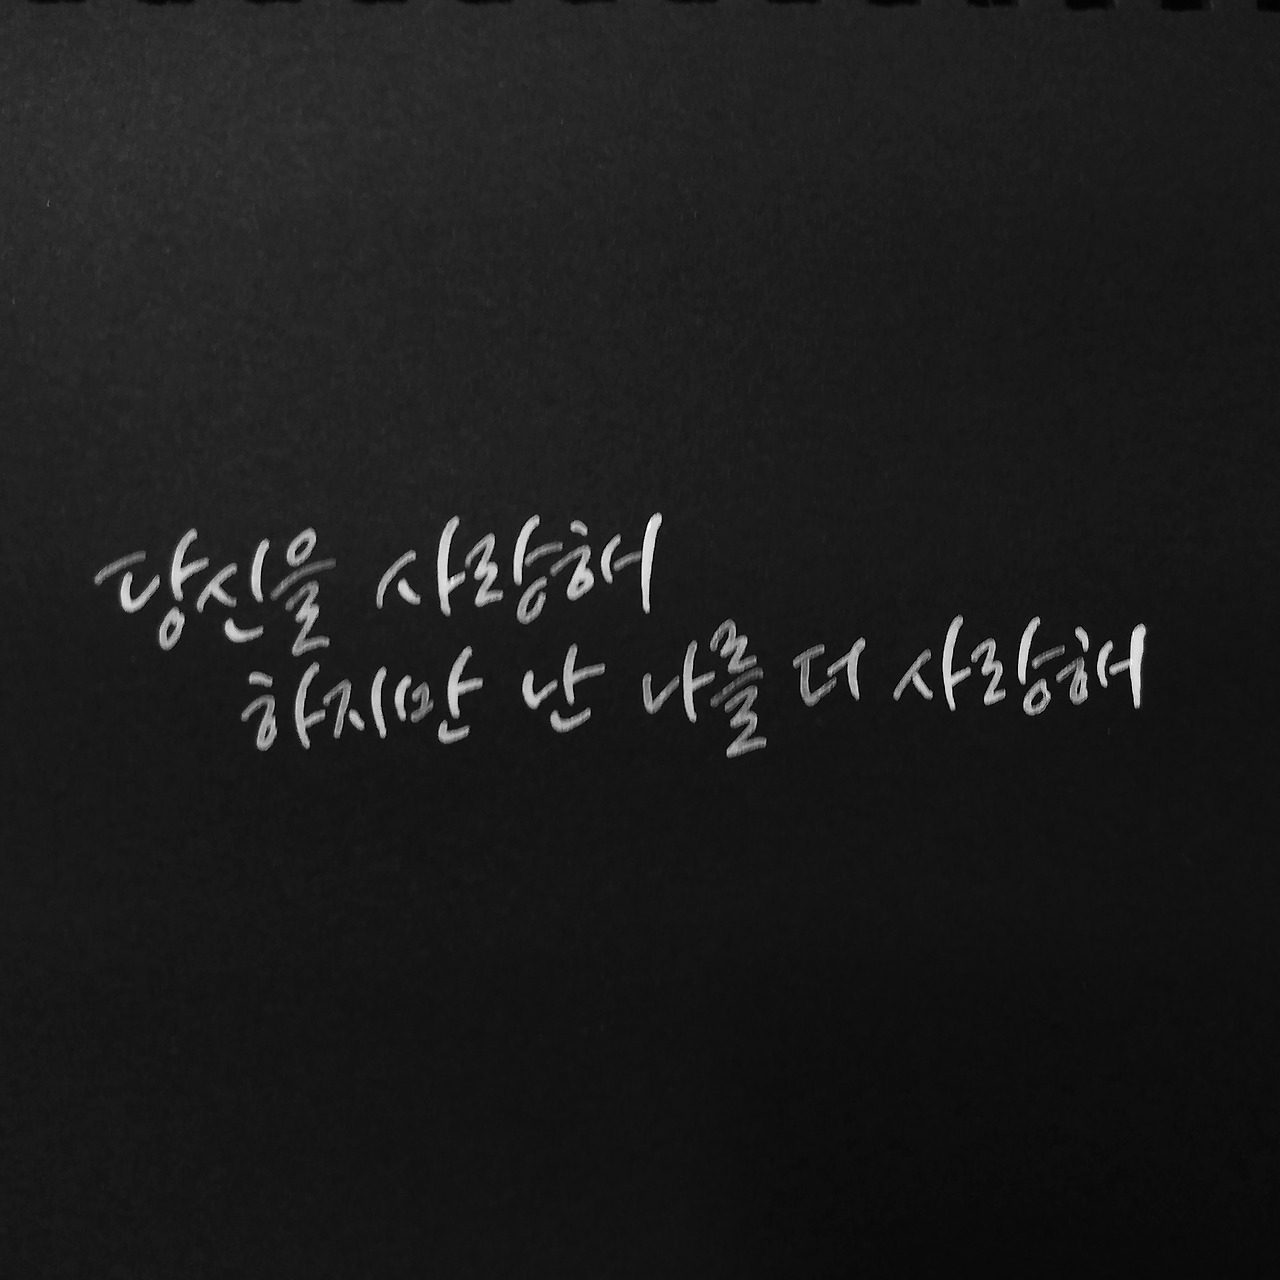 당신을 사랑해
하지만 난 나를 더 사랑해